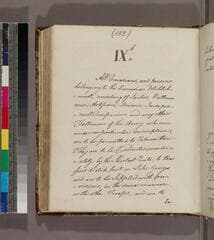 (152)
IX.th
All Canadians, and persons
belonging to the Canadian Establish-
ment, consisting of Sailors, Batteau
men, Artificers, Drivers, Indepen-
dent Companies, and many other
Followers of the Army, who come
under no particular description,
are to be permitted to return there:
They are to be conducted immediate-
ly by the shortest Route, to the
first British post on Lake George,
and are to be supplied with pro-
visions, in the same manner
as the other Troops, and are to